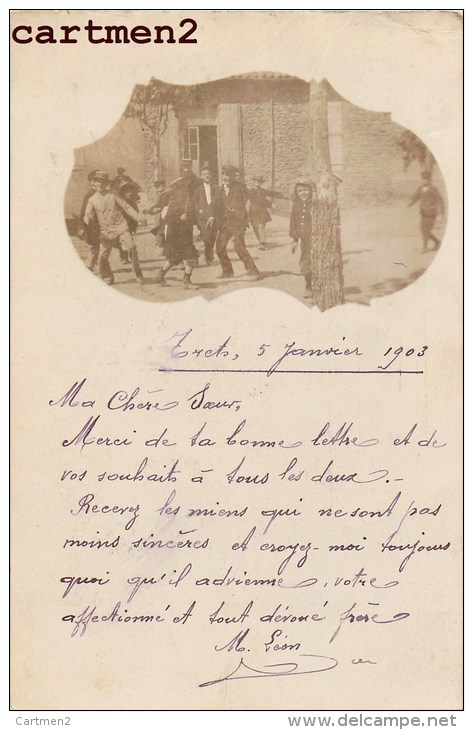 cartmen2
Trets, 5 Janvier 1903
Ma Chère Sœur,
Merci de ta bonne lettre et de
vos souhaits à tous les deux. -
Recevez les miens qui ne sont pas
moins sincères et croyez-moi toujours
quoi qu'il advienne, votre
affectionné et tout dévoué frère
M. Léon
Cartmen2
www.delcampe.net